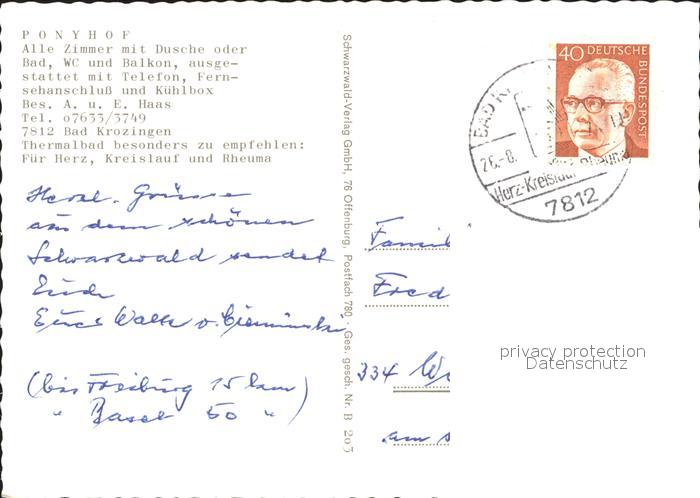 P O N Y H O F
Alle Zimmer mit Dusche oder
Bad, WC und Balkon, ausge-
stattet mit Telefon, Fern-
sehanschluß und Kühlbox
Bes. A. u. E. Haas
Tel. o7633/3749
7812 Bad Krozingen
Thermalbad besonders zu empfehlen:
Für Herz, Kreislauf und Rheuma
Herzl. Grüsse
aus dem schönen
Schwarzwald sendet
Euch
Euer v.
(bis Freiburg 15 km)
" Basel 50 "
Schwarzwald-Verlag GmbH, 76 Offenburg, Postfach 780 · Ges. gesch. Nr. B 2o3
40 DEUTSCHE
BUNDESPOST
BAD
26.-8.
Herz-Kreislauf
7812
Famil
Fred
334 W
am
privacy protection
Datenschutz